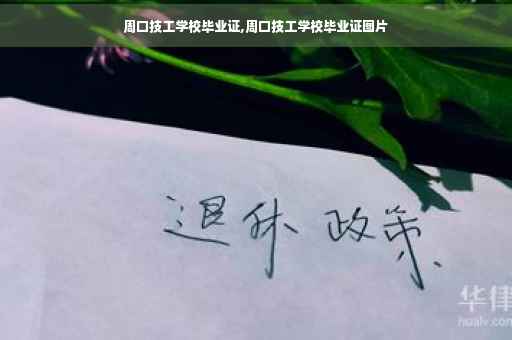 周口技工学校毕业证,周口技工学校毕业证图片
退休 政策
华律
hualv.com